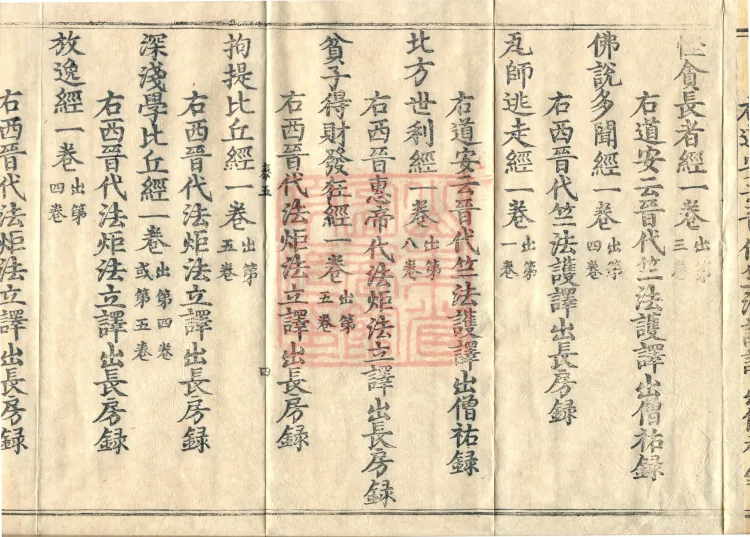 慳貪長者經一卷 出第三卷
右道安云晉代竺法護譯出僧祐録
佛說多聞經一卷 出第四卷
右西晉代竺法護譯出長房録
瓦師逃走經一卷 出第一卷
右道安云晉代竺法護譯出僧祐録
比方世利經一卷 出第八卷
右西晉惠帝代法炬法立譯出長房録
貧子得財發狂經一卷 出第五卷
右西晉代法炬法立譯出長房録
拘提比丘經一卷 出第五卷
右西晉代法炬法立譯出長房録
深淺學比丘經一卷 出第四卷或第五卷
右西晉代法炬法立譯出長房録
放逸經一卷 出第四卷
右西晉代法炬法立譯出長房録